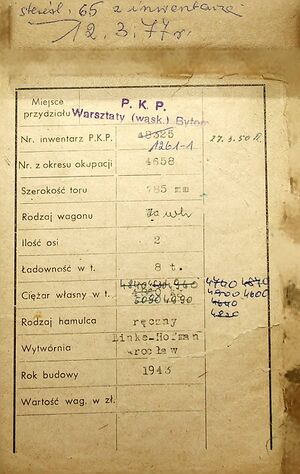 skreśl. 65 z inwentarza
12.3.77 r.
P. K. P.
Miejsce przydziału Warsztaty (wąsk.) Bytom
Nr. inwentarz P.K.P. 1261-1 27.3.50
Nr. z okresu okupacji 4658
Szerokość toru 785 mm
Rodzaj wagonu
Ilość osi 2
Ładowność w t. 8 t.
Ciężar własny w t. 4740
4900 4600
4640
Rodzaj hamulca ręczny
Wytwórnia Linke-Hofman
Wrocław
Rok budowy 1943
Wartość wag. w zł.